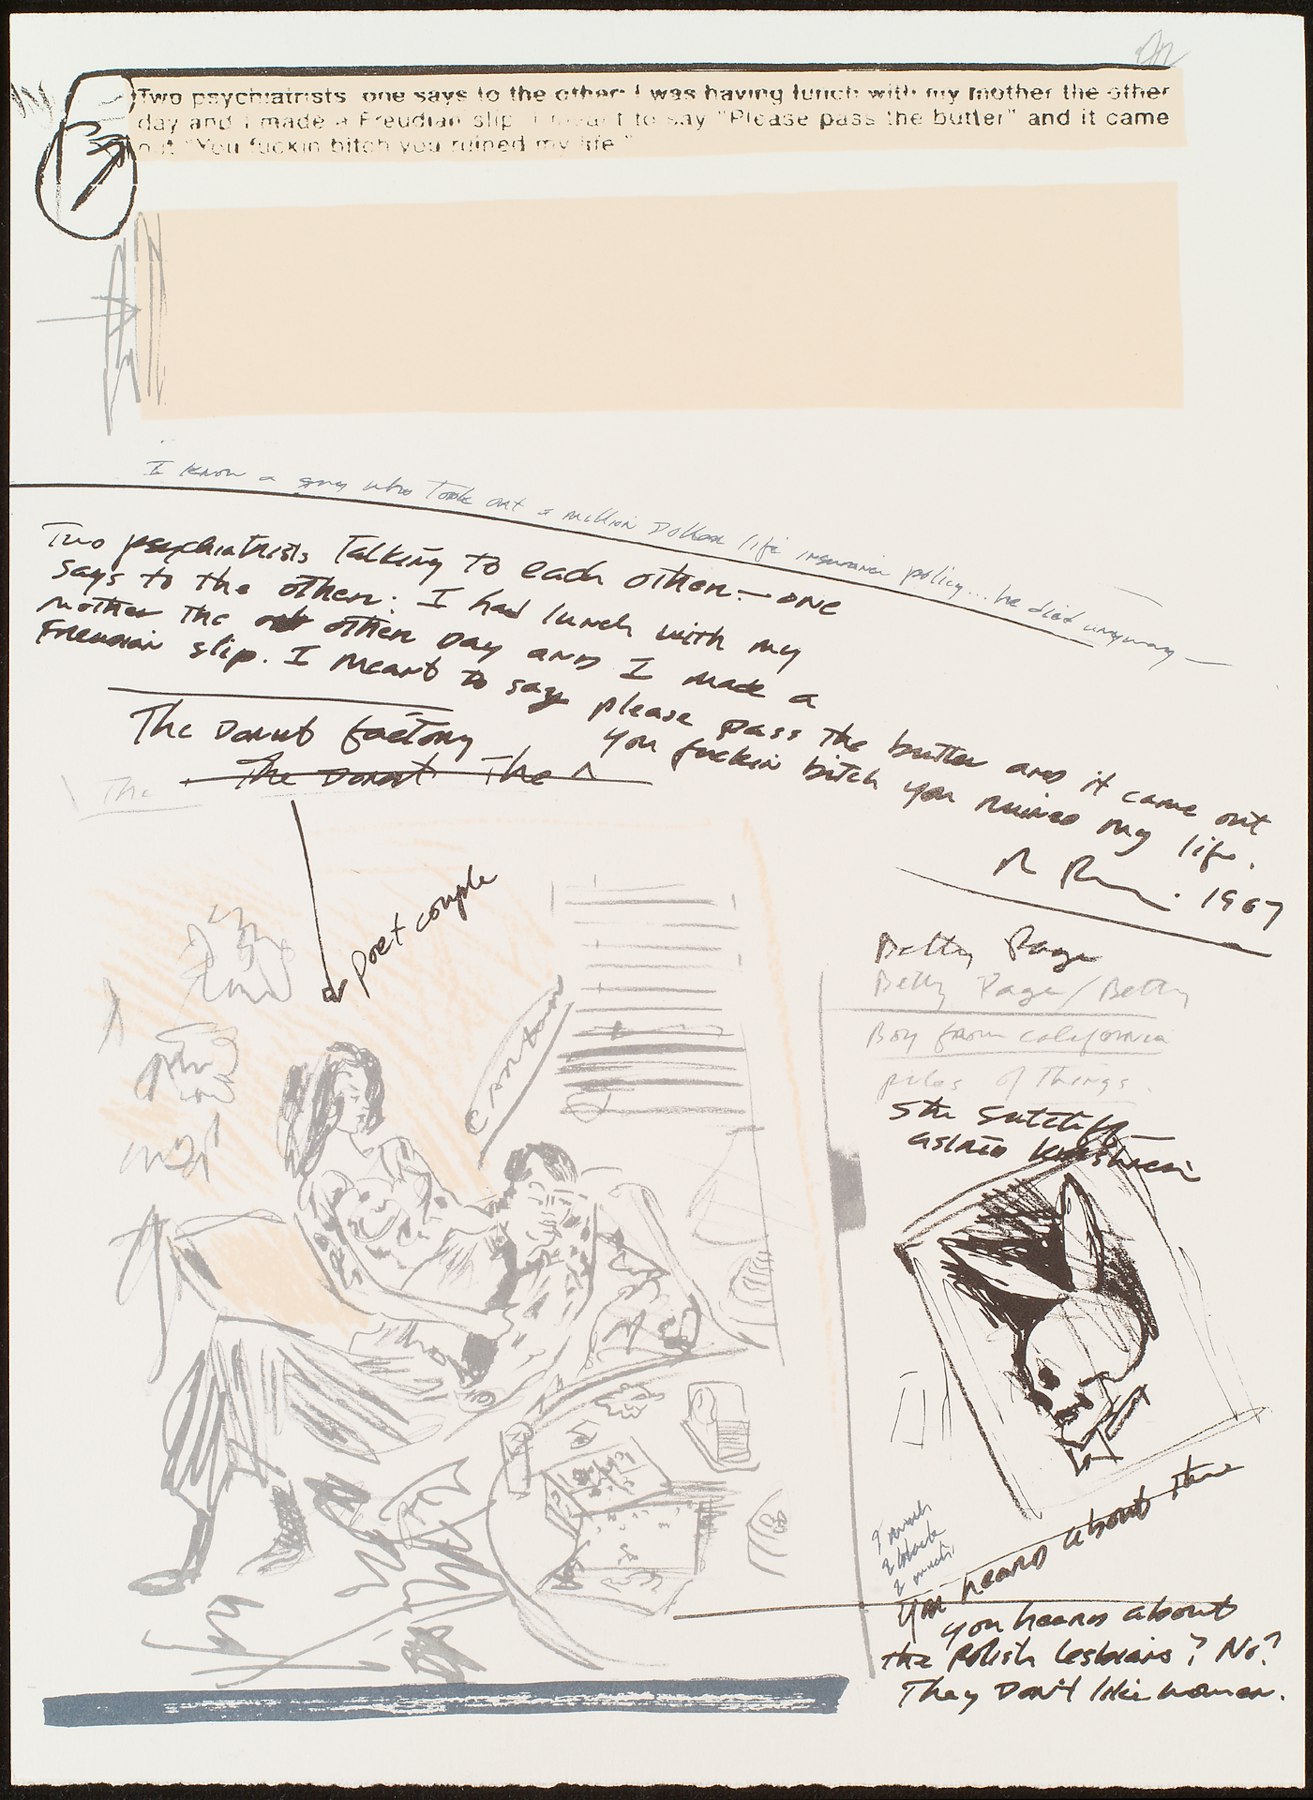 Two psychiatrists one says to the other: I was having lunch with my mother the other
day and I made a Freudian slip. I meant to say "Please pass the butter" and it came
out "You fuckin bitch you ruined my life."
I know a guy who took out a million dollar life insurance policy... he died anyway —
Two psychiatrists talking to each other — one
says to the other: I had lunch with my
mother the other day and I made a
Freudian slip. I meant to say please pass the butter and it came out
you fuckin bitch you ruined my life.
The Donut factory
The Donut The
The
1967
poet couple
Betty Page
Betty Page / Betty
Boy from California
piles of things.
Stu Sutcliff
cartoon
You heard about the
you heard about
the Polish lesbians? No?
They Don't like women.